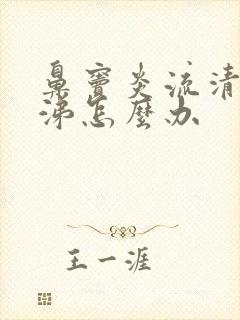 鼻窦炎流清
涕怎麼办
王一涯